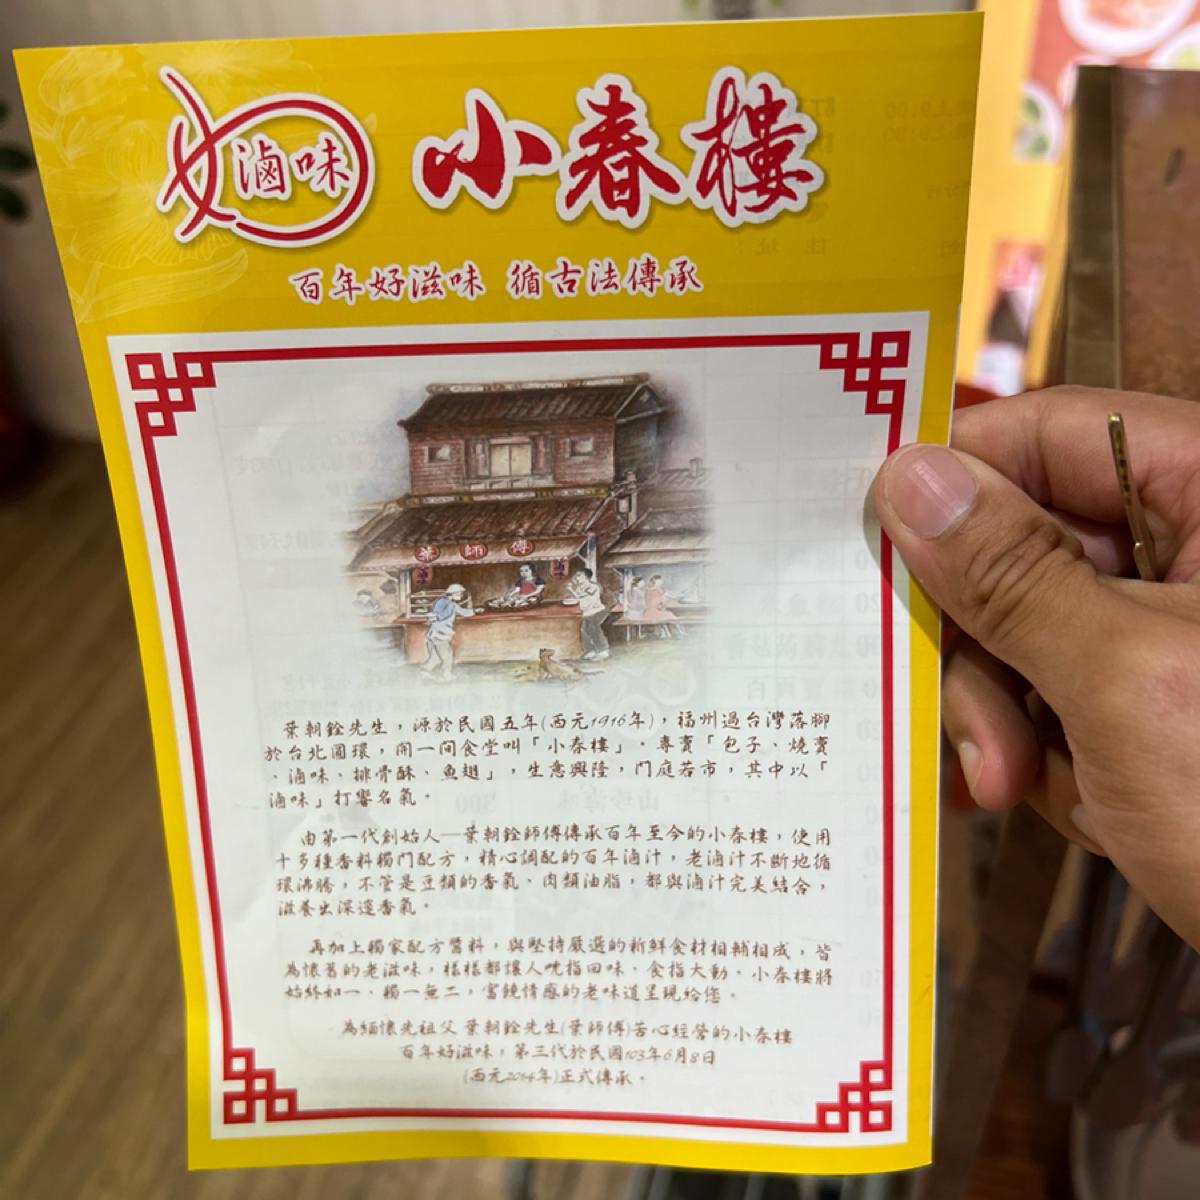 滷味 小春樓
百年好滋味 循古法傳承
葉 師 傅
葉朝銓先生，源於民國五年(西元1916年)，福州過台灣落腳
於台北圓環，開一間食堂叫「小春樓」。專賣「包子、燒賣
、滷味、排骨酥、魚翅」，生意興隆，門庭若市，其中以「
滷味」打響名氣。
由第一代創始人—葉朝銓師傅傳承百年至今的小春樓，使用
十多種香料獨門配方，精心調配的百年滷汁，老滷汁不斷地循
環沸騰，不管是豆類的香氣、肉類油脂，都與滷汁完美結合，
滋養出深邃香氣。
再加上獨家配方醬料，與堅持嚴選的新鮮食材相輔相成，皆
為懷舊的老滋味，樣樣都讓人吮指回味、食指大動。小春樓將
始終如一、獨一無二，富饒情感的老味道呈現給您。
為緬懷先祖父 葉朝銓先生(葉師傅)苦心經營的小春樓
百年好滋味，第三代於民國103年6月8日
(西元2014年)正式傳承。